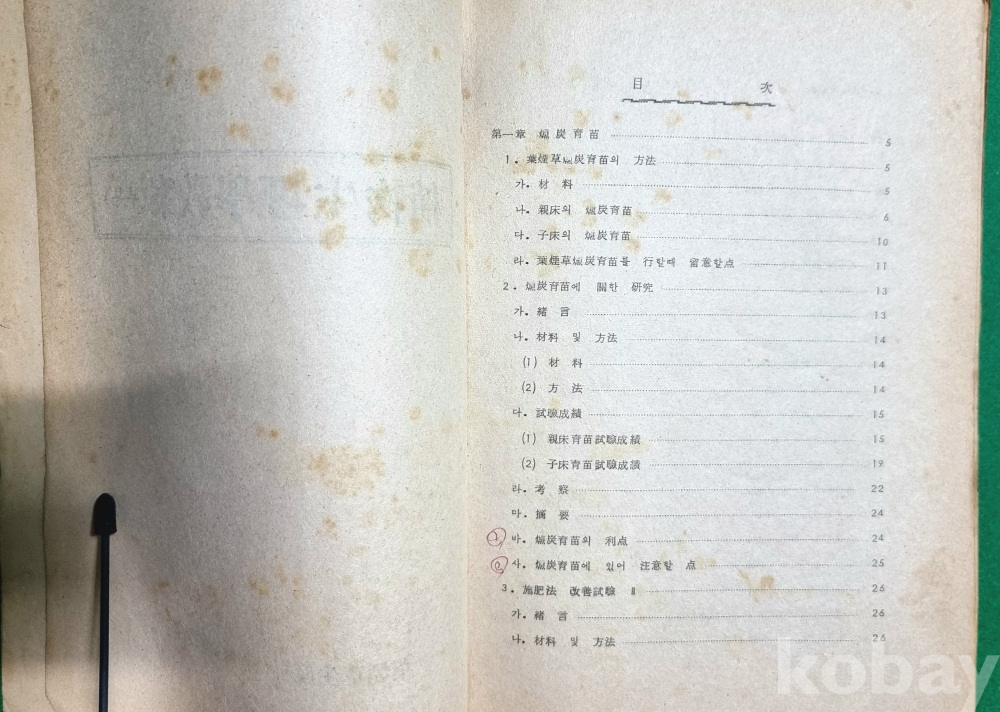 目 次
第一章 煉炭育苗 5
1. 葉煙草煉炭育苗의 方法 5
가. 材 料 5
나. 親床의 煉炭育苗 6
다. 子床의 煉炭育苗 10
라. 葉煙草煉炭育苗를 行할때 留意할点 11
2. 煉炭育苗에 關한 研究 13
가. 緖 言 13
나. 材料 및 方法 14
(1) 材 料 14
(2) 方 法 14
다. 試驗成績 15
(1) 親床育苗試驗成績 15
(2) 子床育苗試驗成績 19
라. 考 察 22
마. 摘 要 24
바. 煉炭育苗의 利点 24
사. 煉炭育苗에 있어 注意할 点 25
3. 施肥法 改善試驗 Ⅱ 26
가. 緖 言 26
나. 材料 및 方法 26
kobay